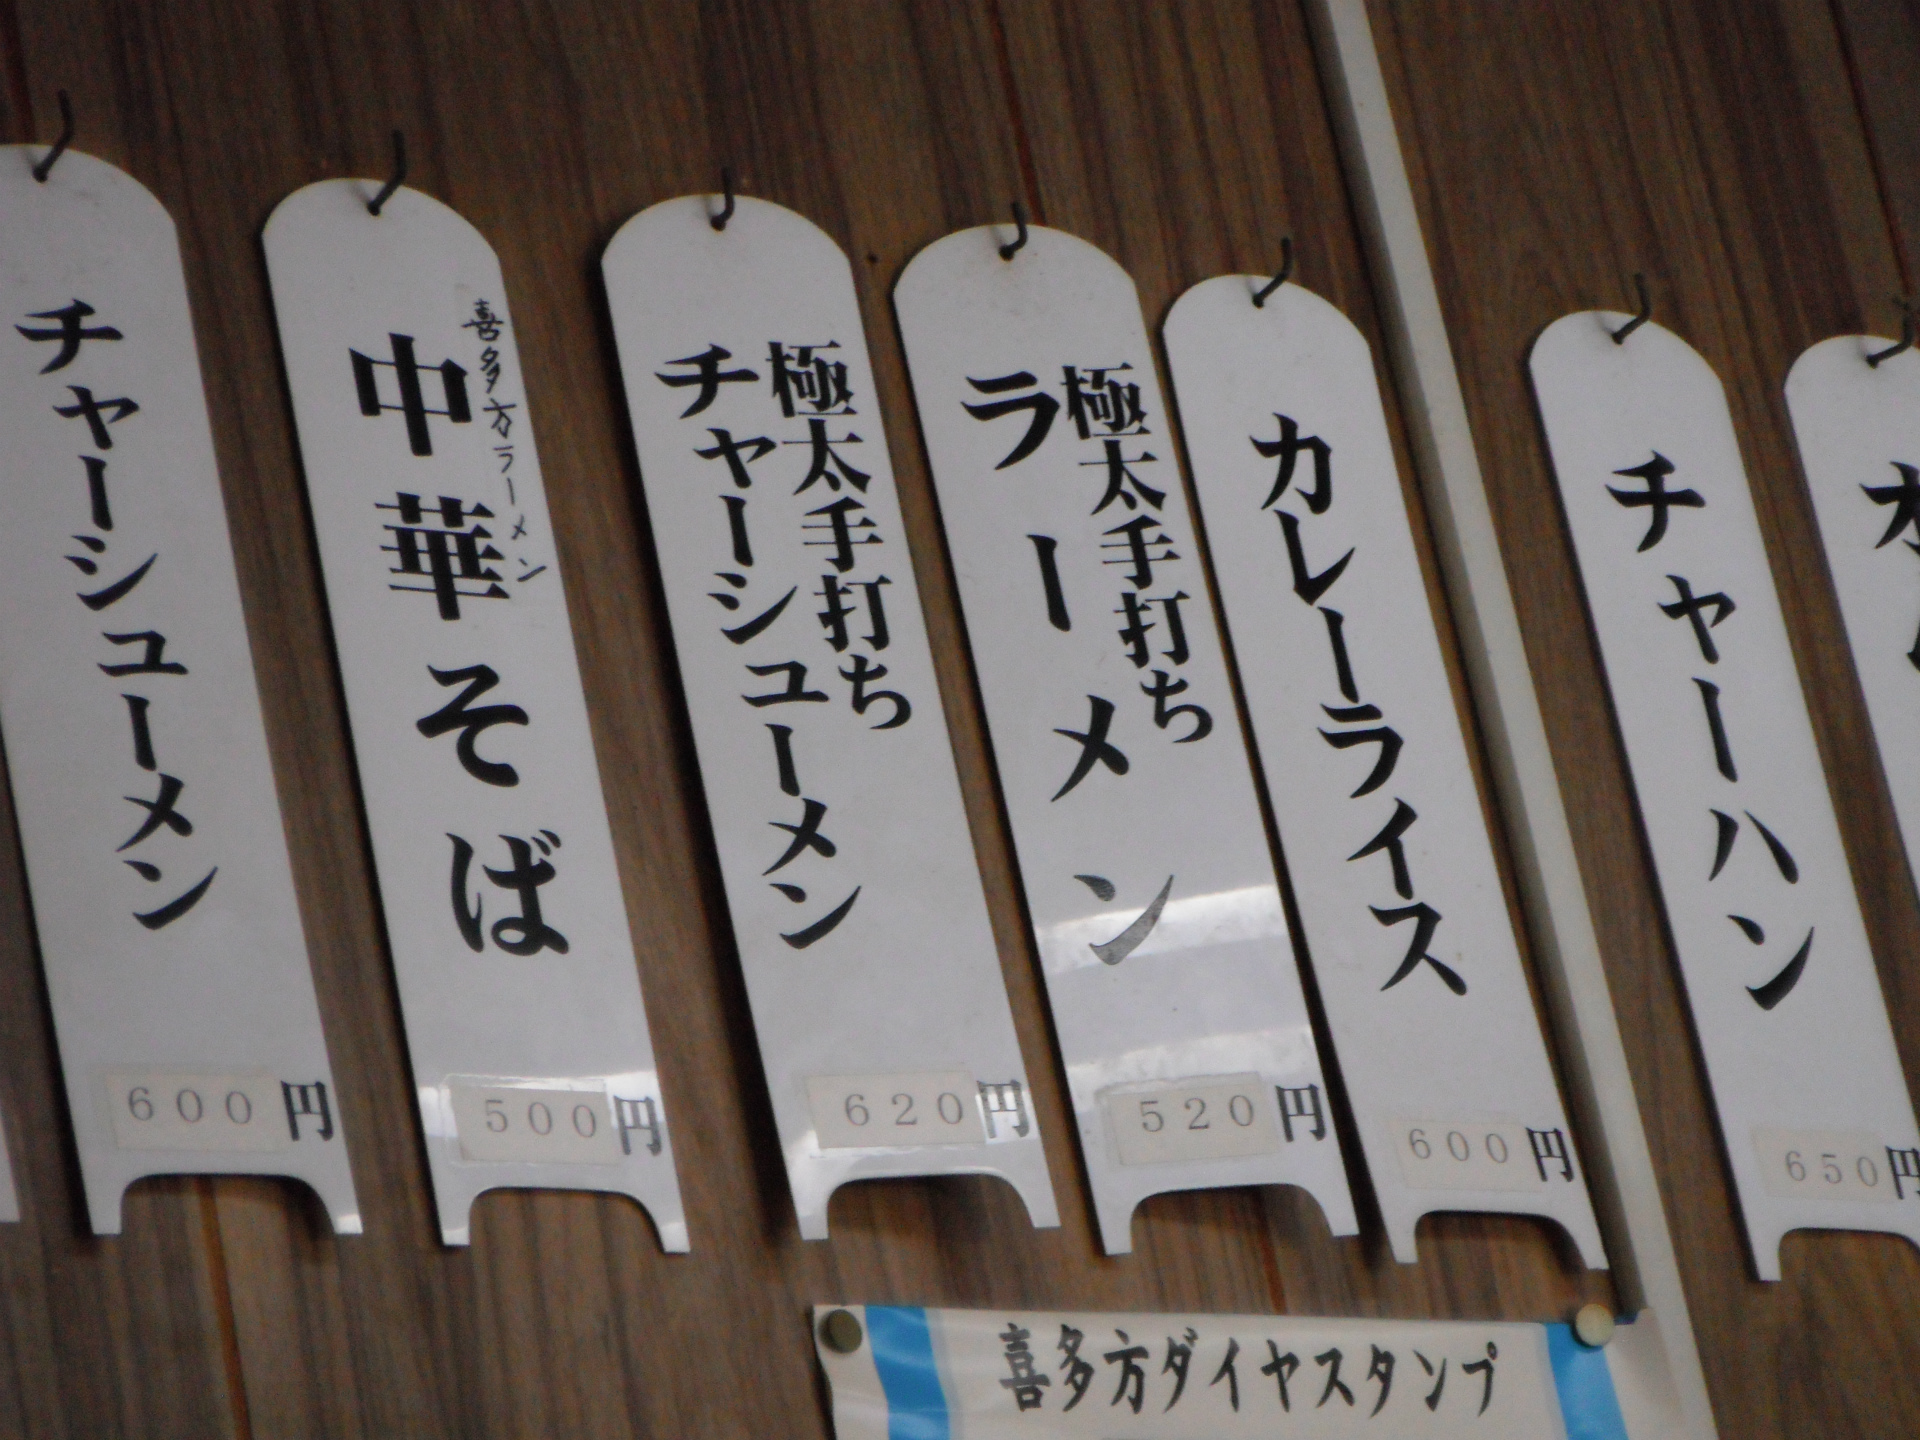 チャーシューメン
600円
喜多方ラーメン
中華そば
500円
極太手打ち
チャーシューメン
620円
極太手打ち
ラーメン
520円
カレーライス
600円
チャーハン
650円
喜多方ダイヤスタンプ